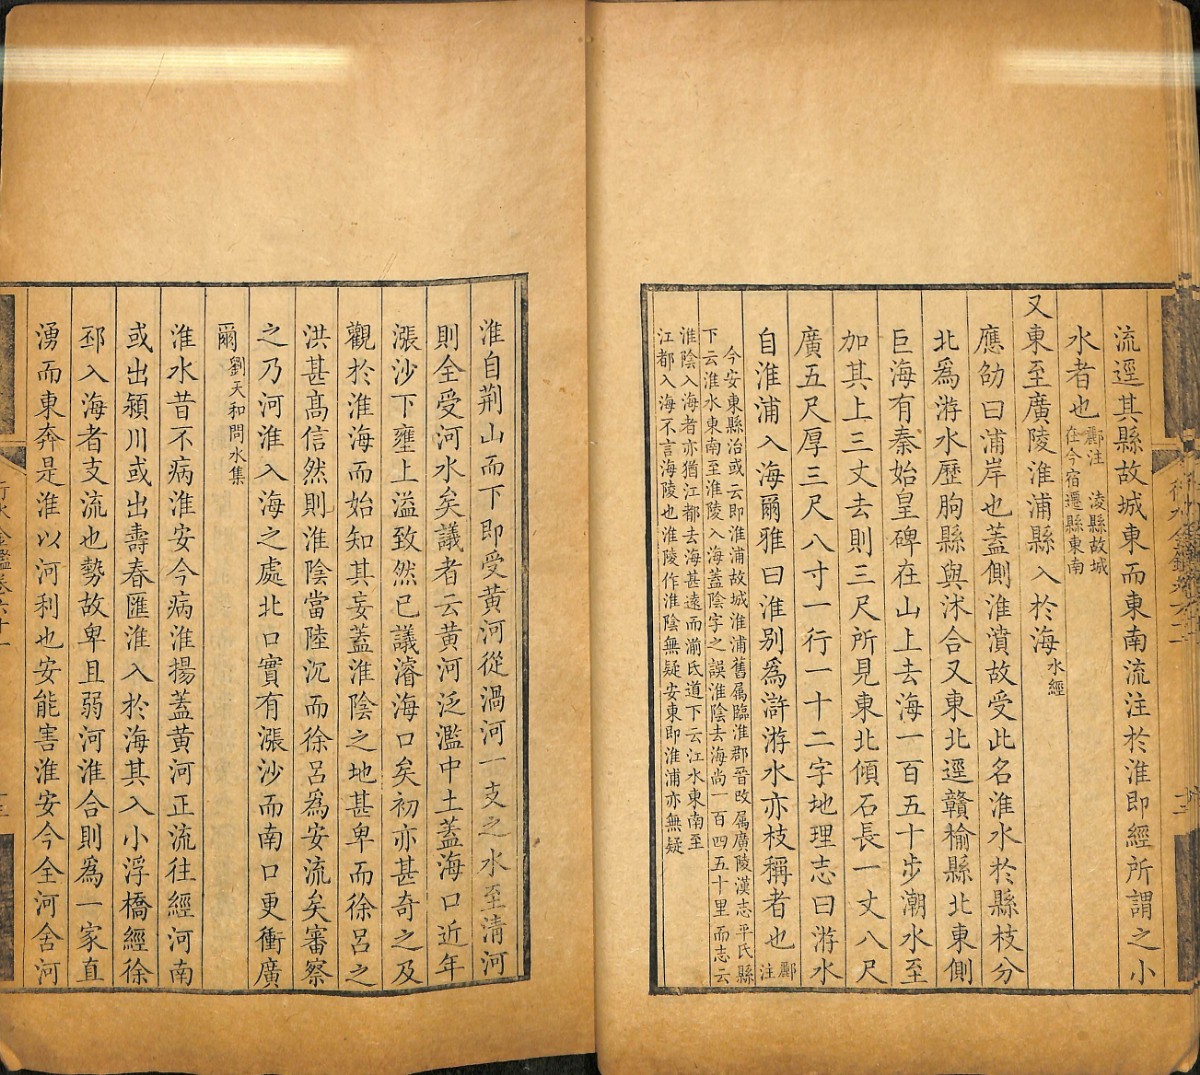 流逕其縣故城東而東南流注於淮即經所謂之小
水者也酈注 淩縣故城在今宿遷縣東南
又東至廣陵淮浦縣入於海水經
應劭曰浦岸也蓋側淮濆故受此名淮水於縣枝分
北爲游水歷朐縣與沭合又東北逕贛榆縣北東側
巨海有秦始皇碑在山上去海一百五十步潮水至
加其上三丈去則三尺所見東北傾石長一丈八尺
廣五尺厚三尺八寸一行一十二字地理志曰游水
自淮浦入海爾雅曰淮別爲滸游水亦枝稱者也酈注
今安東縣治或云即淮浦故城淮浦舊属臨淮郡晉改属廣陵漢志平氏縣
下云淮水東南至淮陵入海蓋陰字之誤淮陰去海尚一百四五十里而志云
淮陰入海者亦猶江都去海甚遠而湔氐道下云江水東南至
江都入海不言海陵也淮陵作淮陰無疑安東即淮浦亦無疑
淮自荆山而下即受黃河從渦河一支之水至清河
則全受河水矣議者云黃河泛濫中土蓋海口近年
漲沙下壅上溢致然已議濬海口矣初亦甚奇之及
觀於淮海而始知其妄蓋淮陰之地甚卑而徐呂之
洪甚髙信然則淮陰當陸沉而徐呂爲安流矣審察
之乃河淮入海之處北口實有漲沙而南口更衝廣
爾劉天和問水集
淮水昔不病淮安今病淮揚蓋黃河正流往經河南
或出潁川或出壽春匯淮入於海其入小浮橋經徐
邳入海者支流也勢故卑且弱河淮合則爲一家直
湧而東奔是淮以河利也安能害淮安今全河舍河